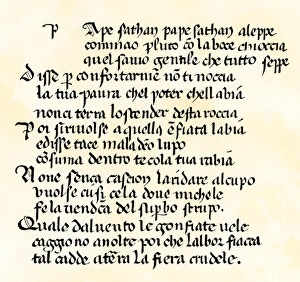 P Ape sathan pape sathan aleppe
comincao pluto cõ la boce chioccia
quel savio gentile che tutto seppe
Disse p confortarme nõ ti noccia
la tua paura chel poter chell abia
non ci terra lo scender desta roccia
Poi si rivolse a quella ẽfiata labia
e disse tace maladcõ lupo
cõsuma dentro te cola tua rabia
None senza cascion laridare al cupo
vuolse cusi cela dove michele
fe la vendca del supbo strup.
Quale dal vento le gonfiate vele
caggiono avolte poi che lalbor fiacca
tal cadde a terra la fiera crudele.